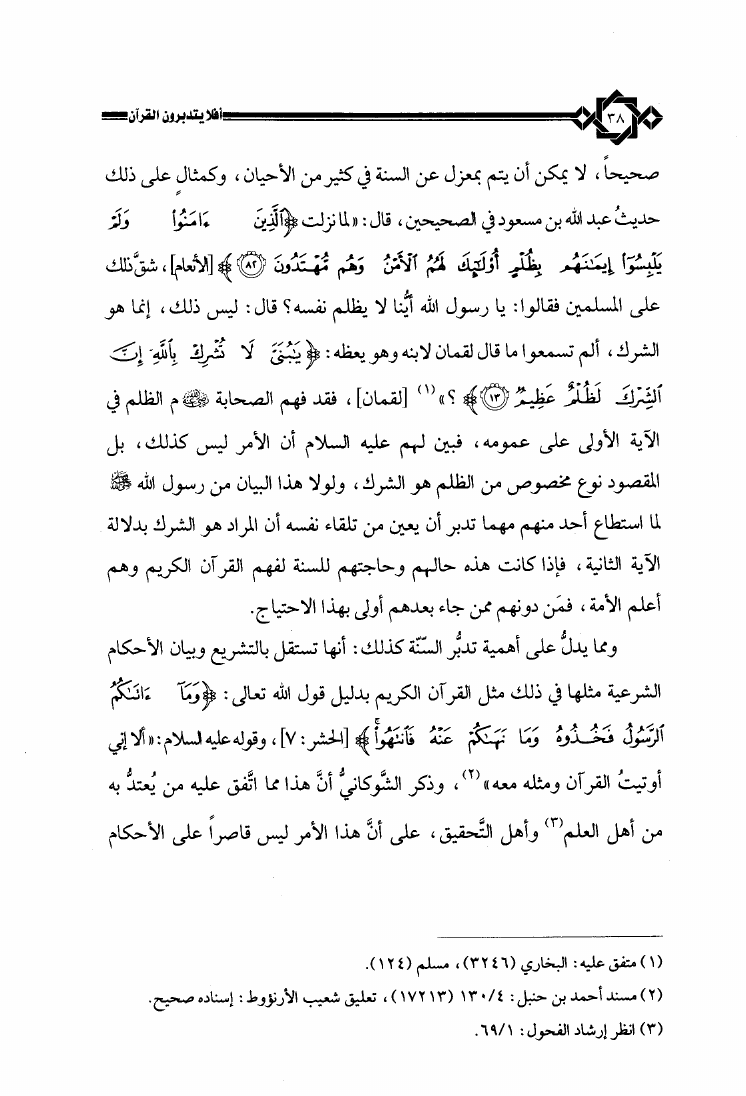 ٣٨ أفلا يتدبرون القرآن
صحيحاً، لا يمكن أن يتم بمعزل عن السنة في كثير من الأحيان، وكمثالٍ على ذلك
حديثُ عبد الله بن مسعود في الصحيحين، قال: «لما نزلت ﴿ٱلَّذِينَ ءَامَنُوا۟ وَلَمْ
يَلْبِسُوٓا۟ إِيمَـٰنَهُم بِظُلْمٍ أُو۟لَـٰٓئِكَ لَهُمُ ٱلْأَمْنُ وَهُم مُّهْتَدُونَ ٨٢﴾ [الأنعام]، شقَّ ذلك
على المسلمين فقالوا: يا رسول الله أيُّنا لا يظلم نفسه؟ قال: ليس ذلك، إنما هو
الشرك، ألم تسمعوا ما قال لقمان لابنه وهو يعظه: ﴿يَـٰبُنَىَّ لَا تُشْرِكْ بِٱللَّهِ إِنَّ
ٱلشِّرْكَ لَظُلْمٌ عَظِيمٌ ١٣﴾؟»(١) [لقمان]، فقد فهم الصحابة ﷺ م الظلم في
الآية الأولى على عمومه، فبين لهم عليه السلام أن الأمر ليس كذلك، بل
المقصود نوع مخصوص من الظلم هو الشرك، ولولا هذا البيان من رسول الله ﷺ
لما استطاع أحد منهم مهما تدبر أن يعين من تلقاء نفسه أن المراد هو الشرك بدلالة
الآية الثانية، فإذا كانت هذه حالهم وحاجتهم للسنة لفهم القرآن الكريم وهم
أعلم الأمة، فمَن دونهم ممن جاء بعدهم أولى بهذا الاحتياج.
ومما يدلُّ على أهمية تدبُّر السنّة كذلك: أنها تستقل بالتشريع وبيان الأحكام
الشرعية مثلها في ذلك مثل القرآن الكريم بدليل قول الله تعالى: ﴿وَمَآ ءَاتَىٰكُمُ
ٱلرَّسُولُ فَخُذُوهُ وَمَا نَهَىٰكُمْ عَنْهُ فَٱنتَهُوا۟ۚ﴾ [الحشر: ٧]، وقوله عليه السلام: «ألا إني
أوتيتُ القرآن ومثله معه»(٢)، وذكر الشَّوكانيُّ أنَّ هذا مما اتَّفق عليه من يُعتدُّ به
من أهل العلم(٣) وأهل التَّحقيق، على أنَّ هذا الأمر ليس قاصراً على الأحكام
(١) متفق عليه: البخاري (٣٢٤٦)، مسلم (١٢٤).
(٢) مسند أحمد بن حنبل: ١٣٠/٤ (١٧٢١٣)، تعليق شعيب الأرنؤوط: إسناده صحيح.
(٣) انظر إرشاد الفحول: ٦٩/١.